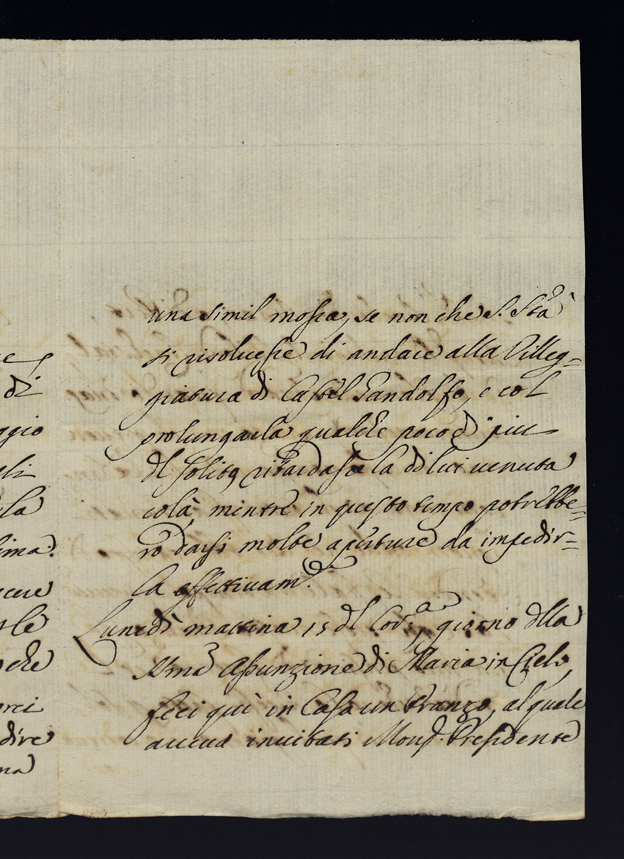 una simil mossa, se non che S. Stà
si risolvesse di andare alla Villeg=
giatura di Castel Gandolfo, e col
prolungarla qualche poco di più
del solito, ritardasse la di lui venuta
colà mentre in questo tempo potrebbe=
ro darsi molte aperture da impedir=
la effettivam.
Lunedì mattina 15 del Corr, giorno della
Assunzione di Maria in Cielo,
feci quì in Casa un Pranzo, al quale
aveva invitati Mons. Presidente
di
ggio
gli
la
cere
che
dire